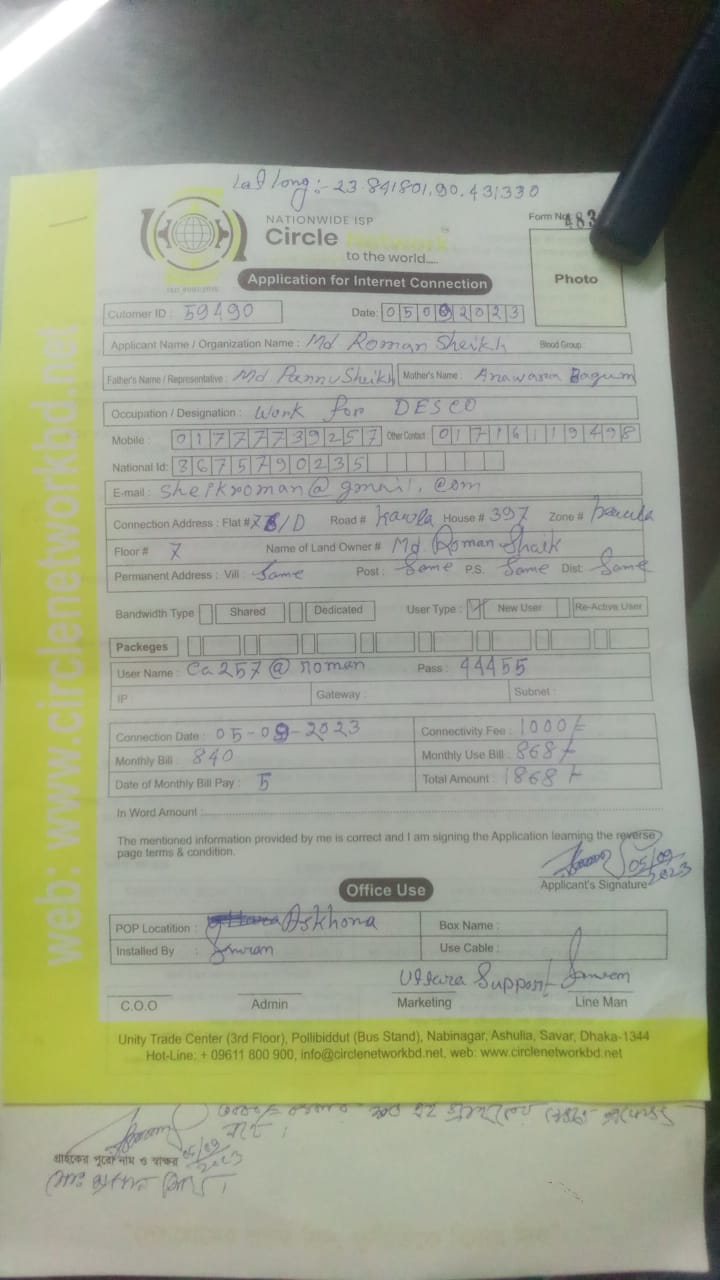 Lat long:- 23.841801, 90.431330
NATIONWIDE ISP
Form No. 483
Circle Network
to the world.....
ISO 9001:2015
Application for Internet Connection
Photo
Cutomer ID : 59490 Date: 05092023
Applicant Name / Organization Name : Md Roman Sheikh Blood Group :
Father's Name / Representative : Md Pannu Sheikh Mother's Name : Anawara Bagum
Occupation / Designation : Work for DESCO
Mobile : 01777739257 Other Contact 01716119498
National Id: 8675790235
E-mail : sheikroman@gmail.com
Connection Address : Flat # 7 /D Road # Kawla House # 397 Zone # kawla
Floor # 7 Name of Land Owner # Md Roman Shaik
Permanent Address : Vill : Same Post : Same P.S. Same Dist: Same
Bandwidth Type Shared Dedicated User Type : New User Re-Active User
Packeges
User Name : Ca257@roman Pass : 44455
IP : Gateway : Subnet :
Connection Date : 05-09-2023 Connectivity Fee : 1000/-
Monthly Bill : 840 Monthly Use Bill : 868/-
Date of Monthly Bill Pay : 5 Total Amount : 1868/-
In Word Amount :
The mentioned information provided by me is correct and I am signing the Application learning the reverse
page terms & condition.
05/09
2023
Applicant's Signature
Office Use
POP Locatition : Askhona Box Name :
Installed By : Use Cable :
Uttara Support
C.O.O Admin Marketing Line Man
Unity Trade Center (3rd Floor), Pollibiddut (Bus Stand), Nabinagar, Ashulia, Savar, Dhaka-1344
Hot-Line: + 09611 800 900, info@circlenetworkbd.net, web: www.circlenetworkbd.net
web: www.circlenetworkbd.net
05/09
2023
গ্রাহকের পুরো নাম ও স্বাক্ষর